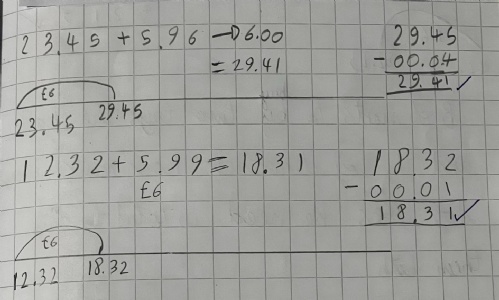 23.45 + 5.96 → 6.00
= 29.41
29.45
- 00.04
29.41 ✓
£6
23.45 29.45
12.32 + 5.99 = 18.31
£6
18.32
- 00.01
18.31 ✓
£6
12.32 18.32